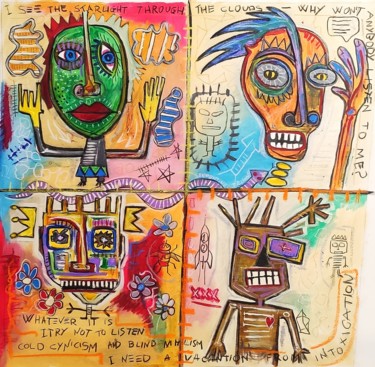 I SEE THE STARLIGHT THROUGH THE CLOUDS - WHY WONT ANYBODY LISTEN TO ME?
WHATEVER IT IS
I TRY NOT TO LISTEN
COLD CYNICISM AND BLIND NIHILISM
I NEED A VACATION FROM INTOXICATION
XXX